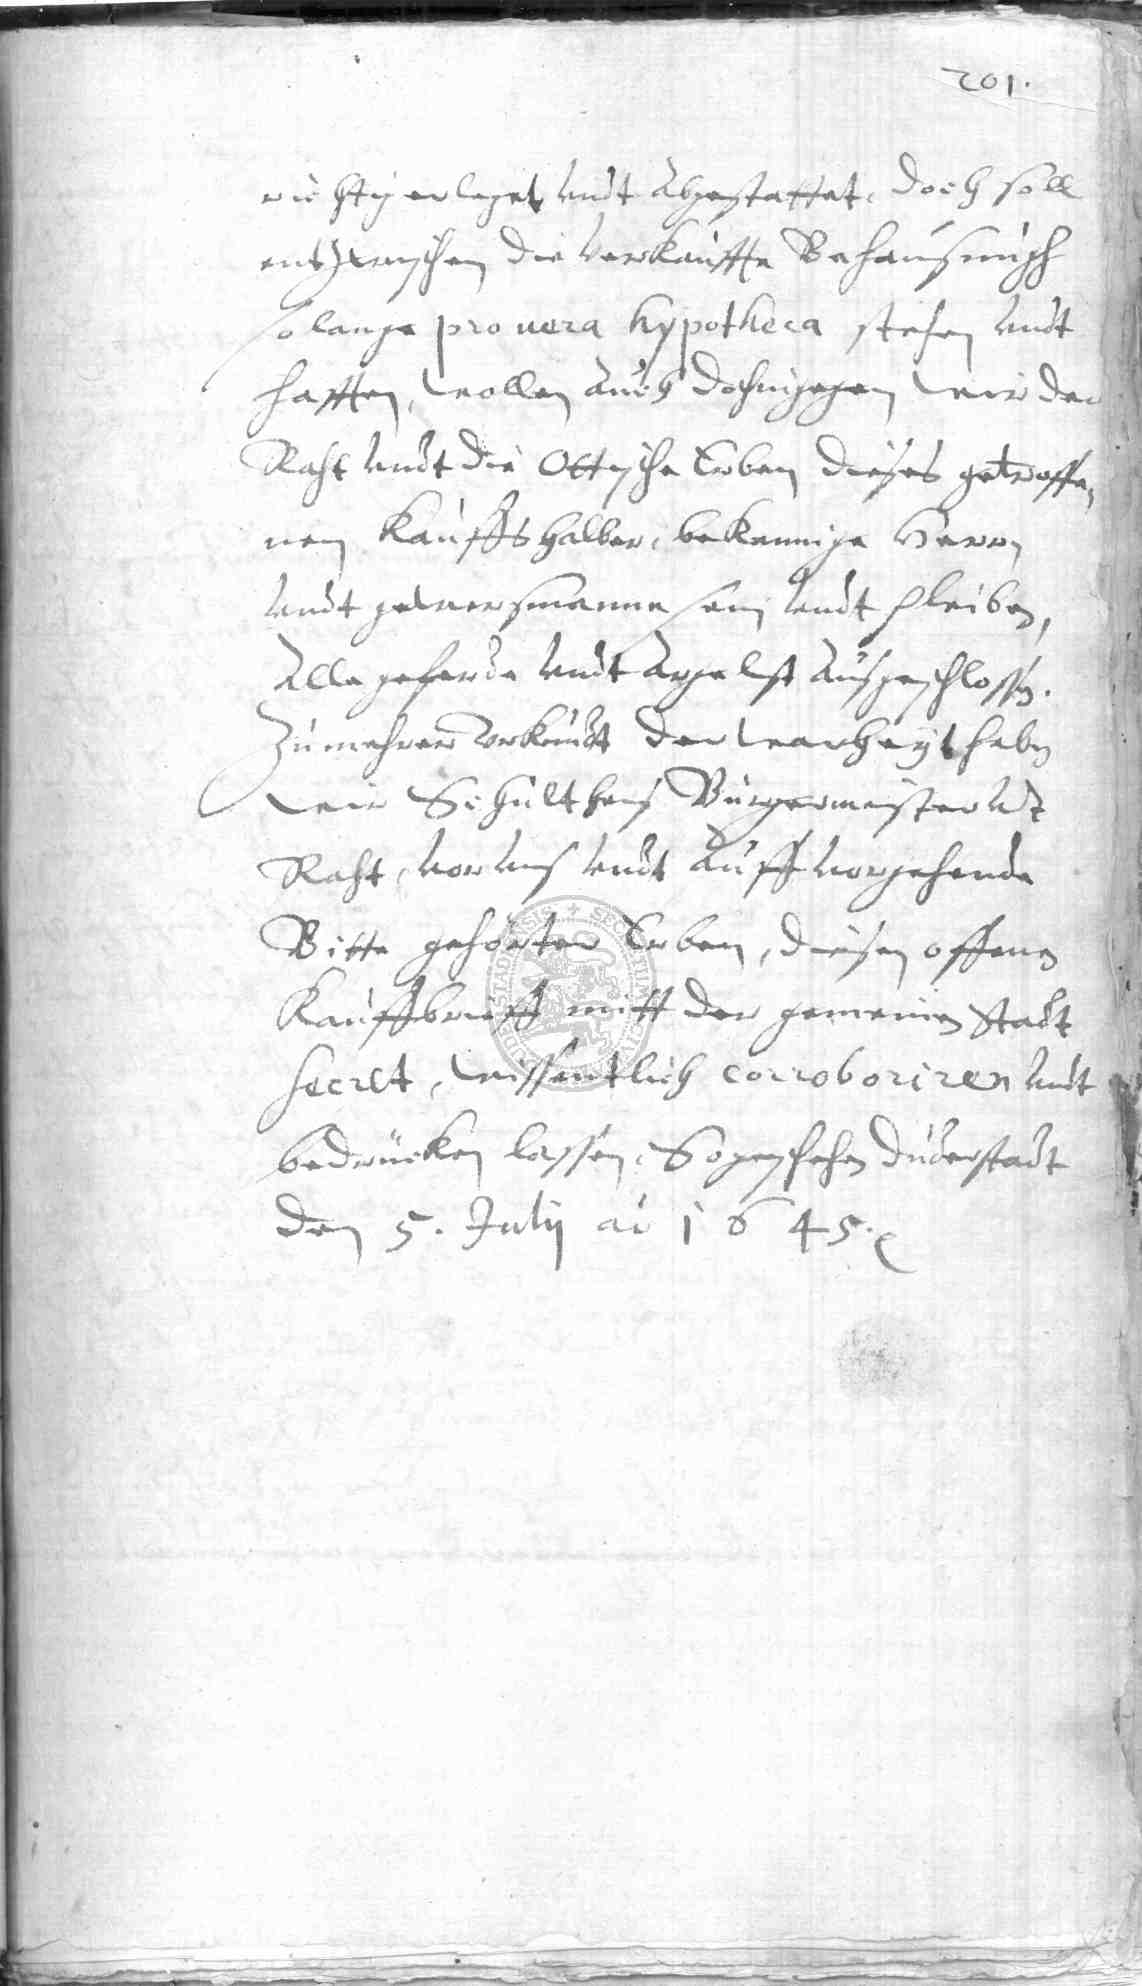 201.
richtig erleget undt abgestattet, doch soll
entzwischen die verkauffte Behausungh
solange pro uera hypotheca stehen undt
hafften, wollen auch dohingegen wir der
Raht undt die Ottische Erben dieses getroffe,
nen Kauffs halber, bekennige Herrn
undt gewersmanne sein undt pleiben,
Alle geferde undt argelist ausgeschlossen.
Zu mehrer Urkundt der warheyt haben
wir Schultheis Bürgermeister undt
Raht, vor uns undt auff vorgehende
Bitte gehörter Erben, diesen offenen
Kauffbrieff mitt der gemeinen Stadt
secret, wissentlich corroboriren undt
bedrücken lassen, So geschehen Duderstadt
den 5. Julij ao 1645.